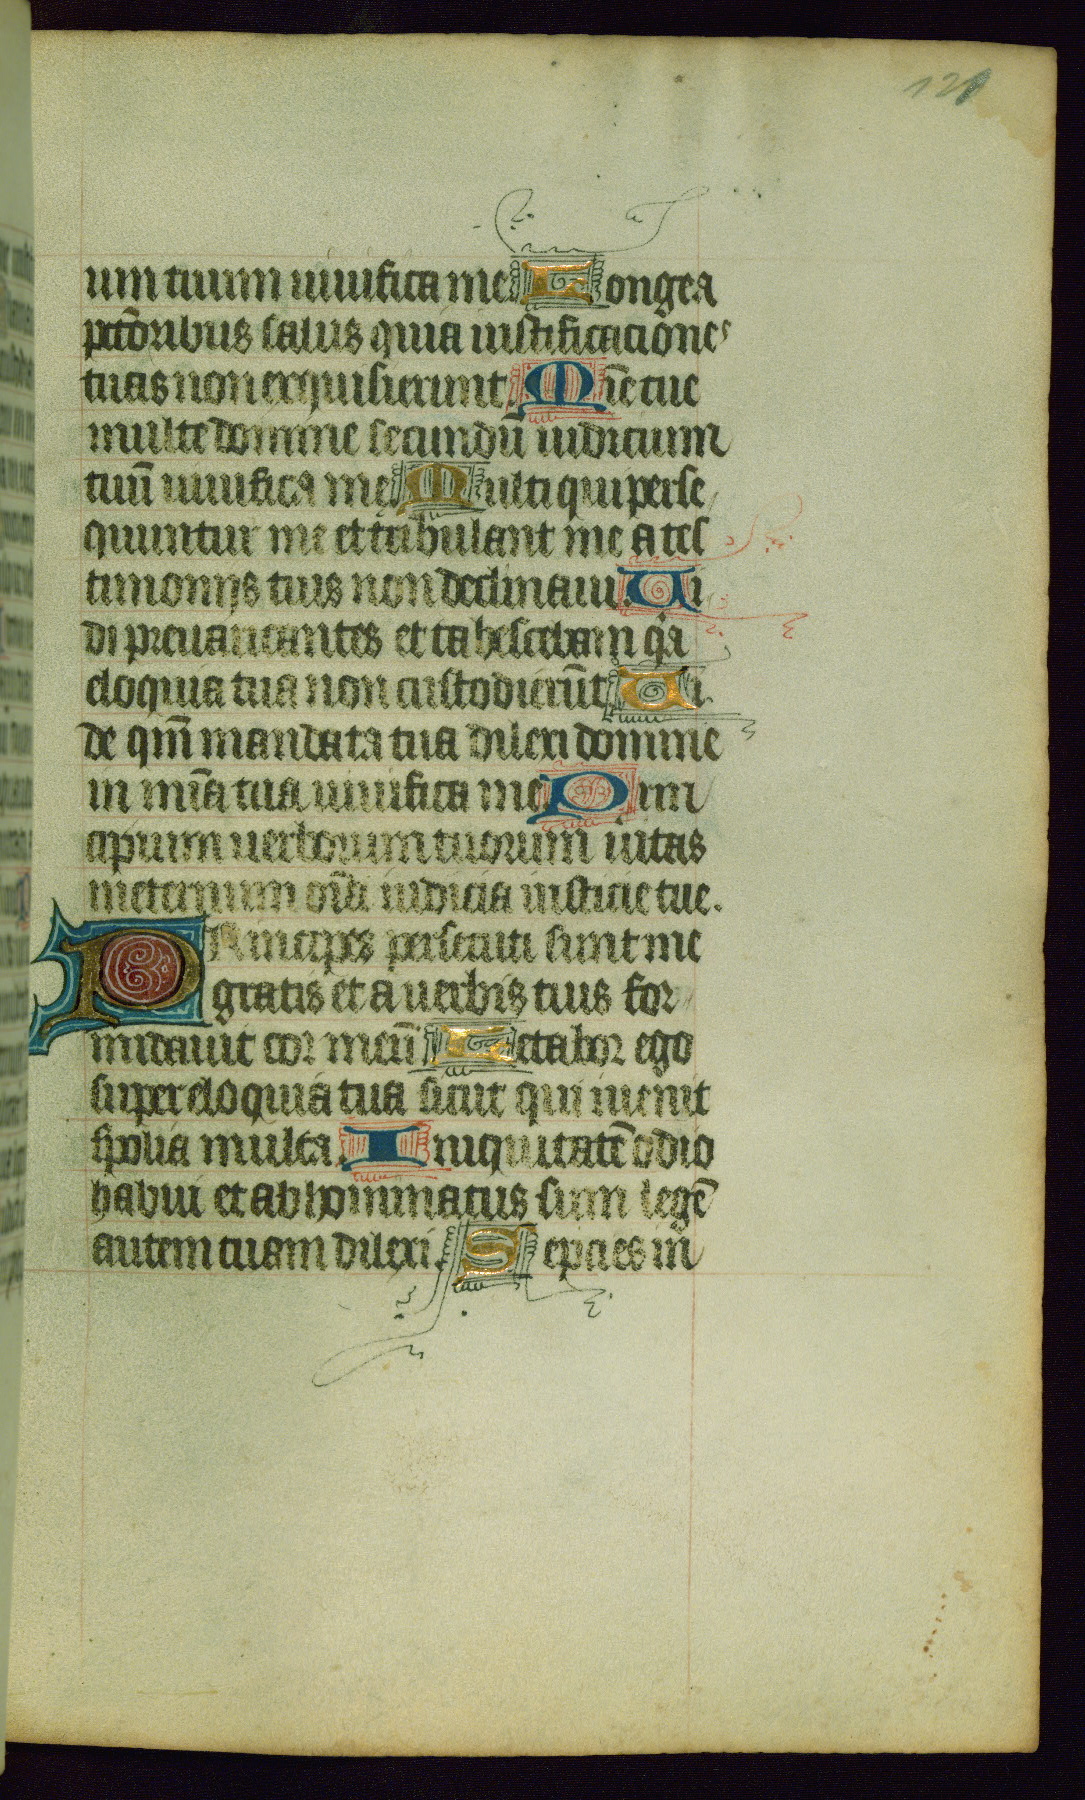 121
um tuum uiuifica me Longe a
pctōribus salus quia iustificaciones
tuas non exquisierunt. Mīe tue
multe domine secundū iudicium
tuū uiuifica me Multi qui perse
quuntur me et tribulant me a tes
timoniis tuis non declinaui. Ui
di preuaricantes et tabescebam qia
eloquia tua non custodierūt Ui
de qm̄ mandata tua dilexi domine
in mīa tua uiuifica me Prin
cipium uerborum tuorum ueritas
in eternum oīa iudicia iusticie tue.
Principes persecuti sunt me
gratis et a uerbis tuis for
midauit cor meū Letabor ego
super eloquia tua sicut qui iuenit
spolia multa. Iniquitatē odio
habui et abhominatus sum legē
autem tuam dilexi. Sepcies in